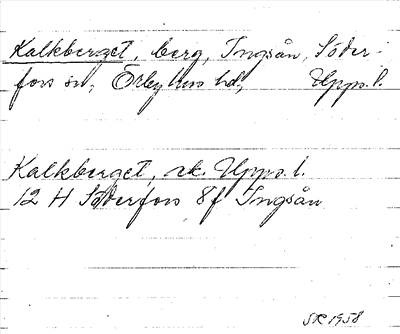 Kalkberget, berg, Ingsån, Söder-
fors sn, Örbyhus hd, Upps.l.
Kalkberget, ek. Upps.l.
12 H Söderfors 8f Ingsån
SR 1958